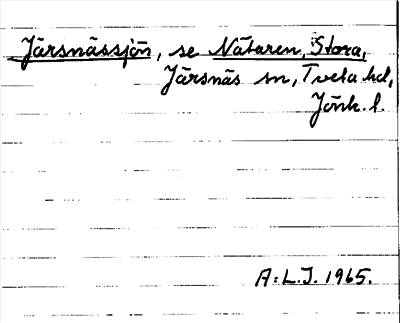 Järsnässjön, se Nätaren, Stora,
Järsnäs sn, Tveta hd,
Jönk. l.
A.L.J. 1965.